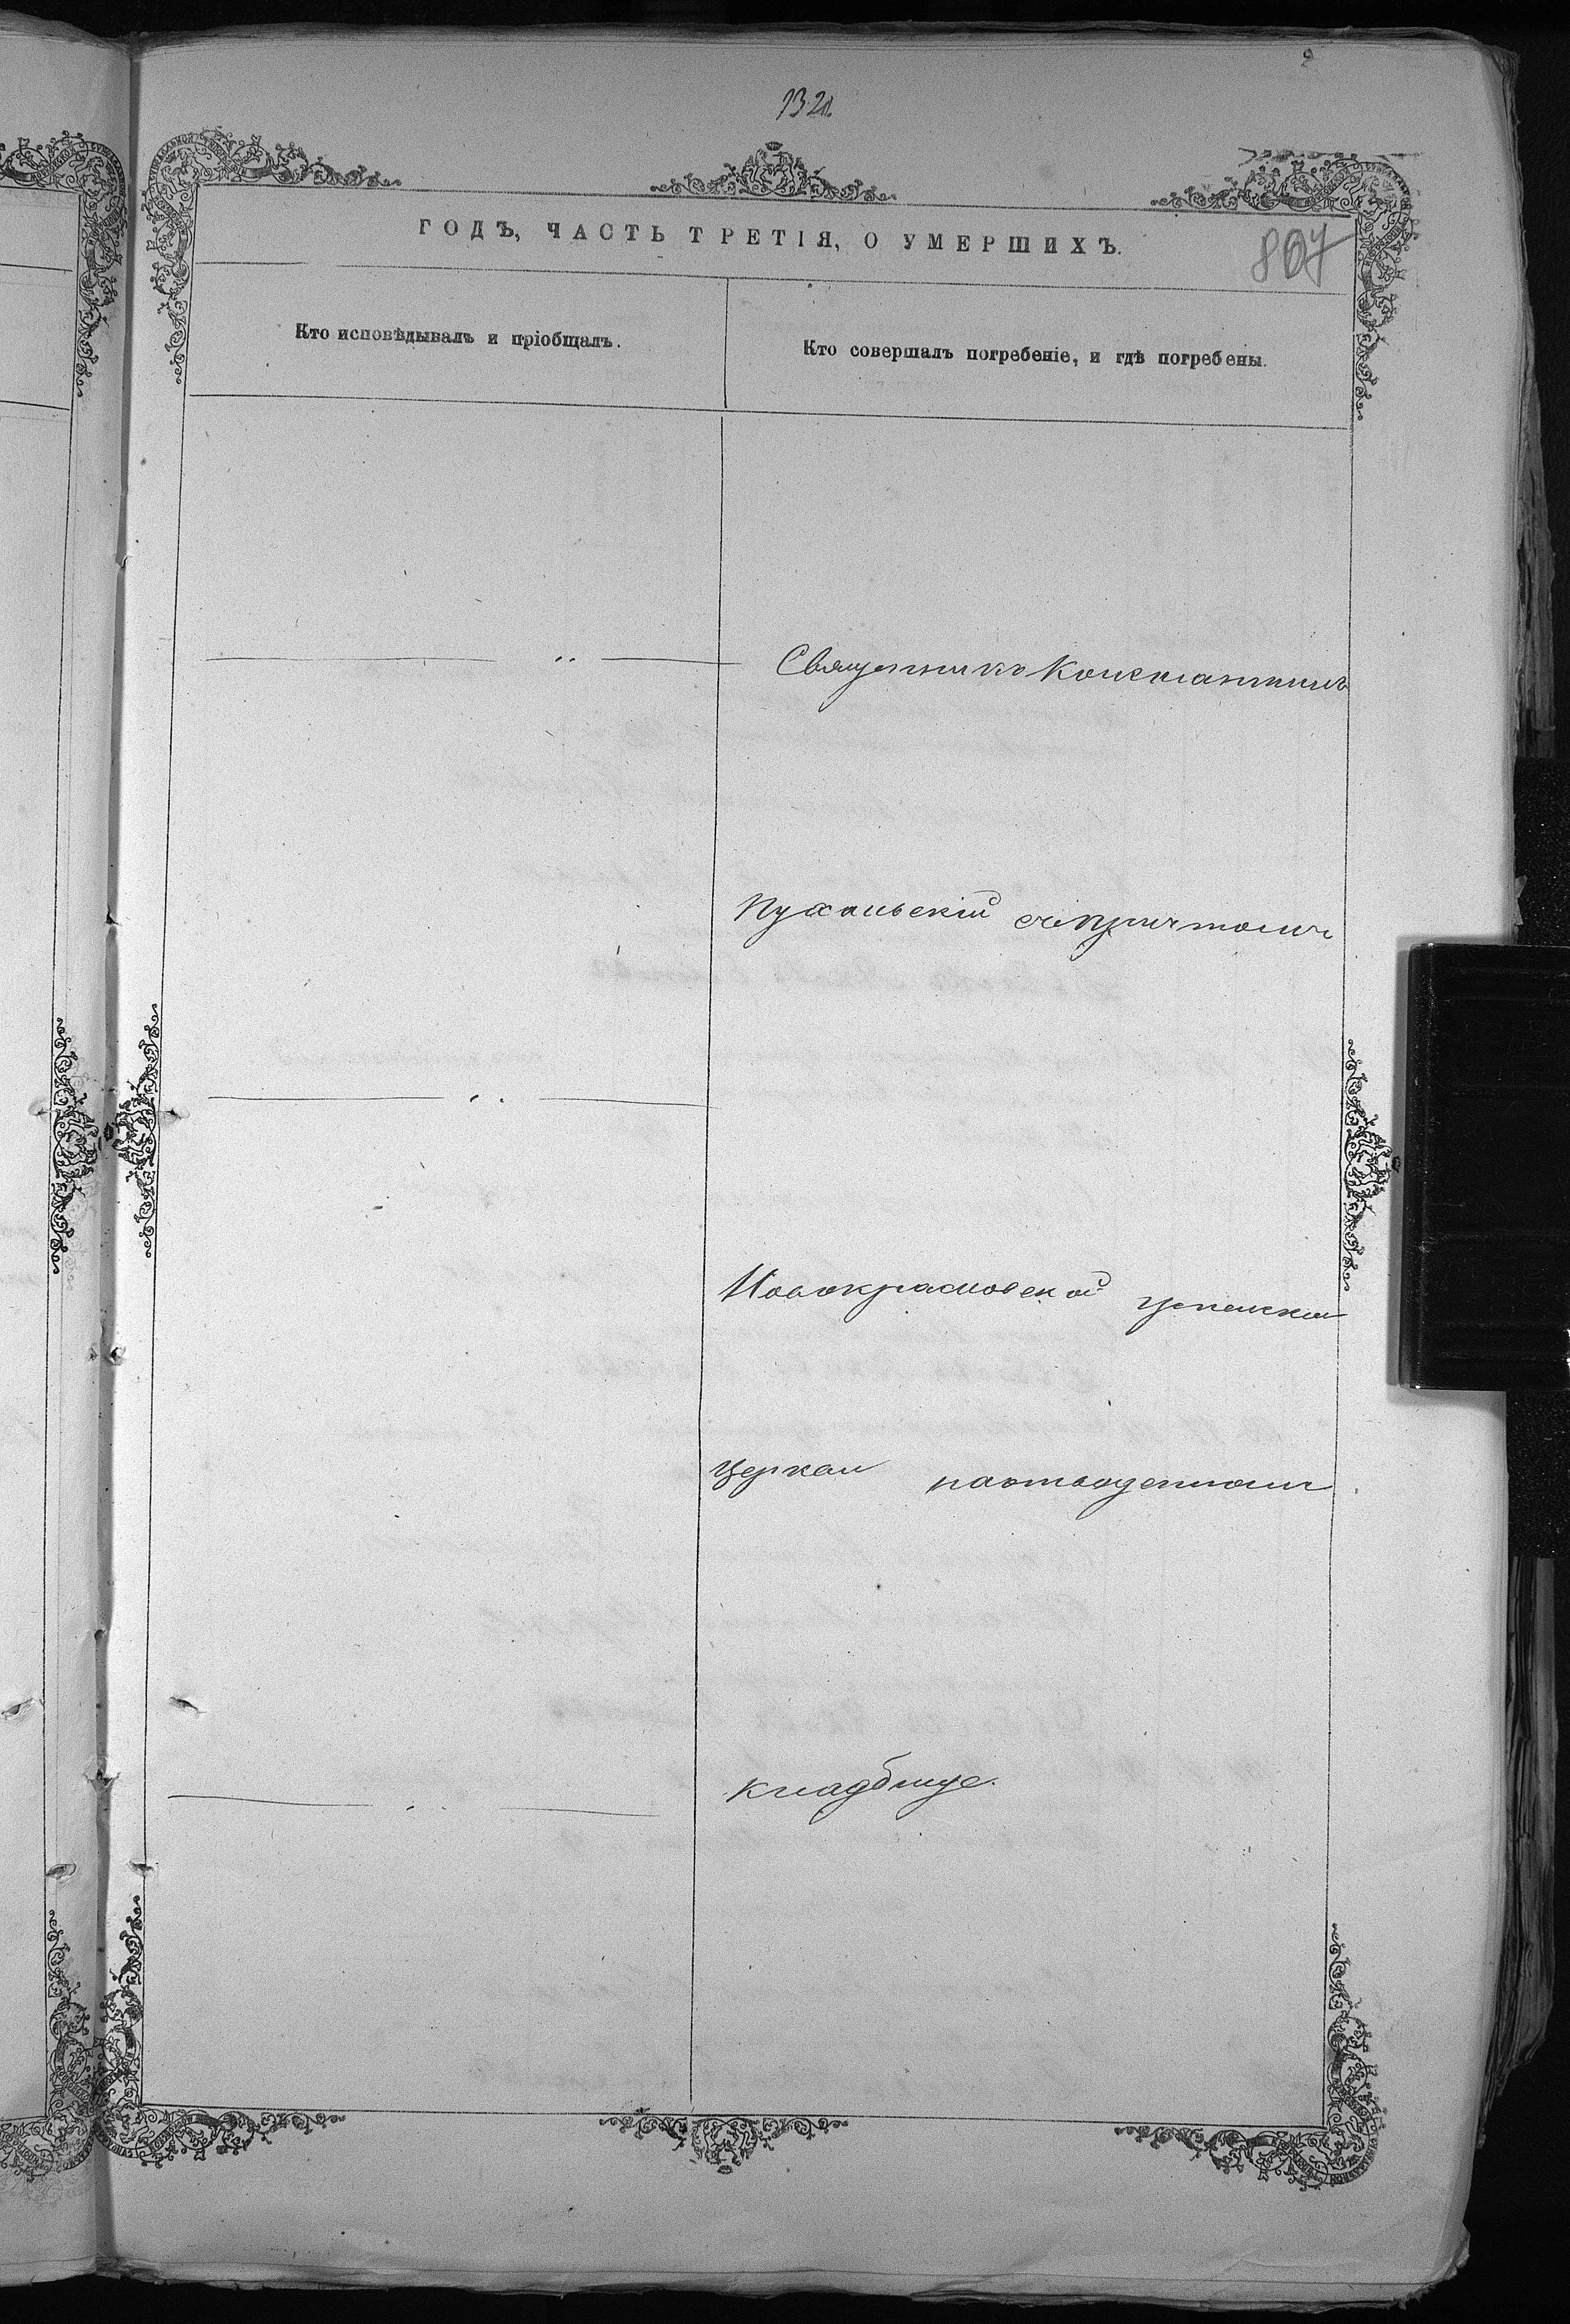 1321
ГОДЪ, ЧАСТЬ ТРЕТІЯ, О УМЕРШИХЪ.
807
Кто исповѣдывалъ и пріобщалъ.
Кто совершалъ погребеніе, и гдѣ погребены.
Священникъ Константинъ
Пухальскій съ причтомъ
Новокрасновской
церкви на отведенномъ
кладбище.